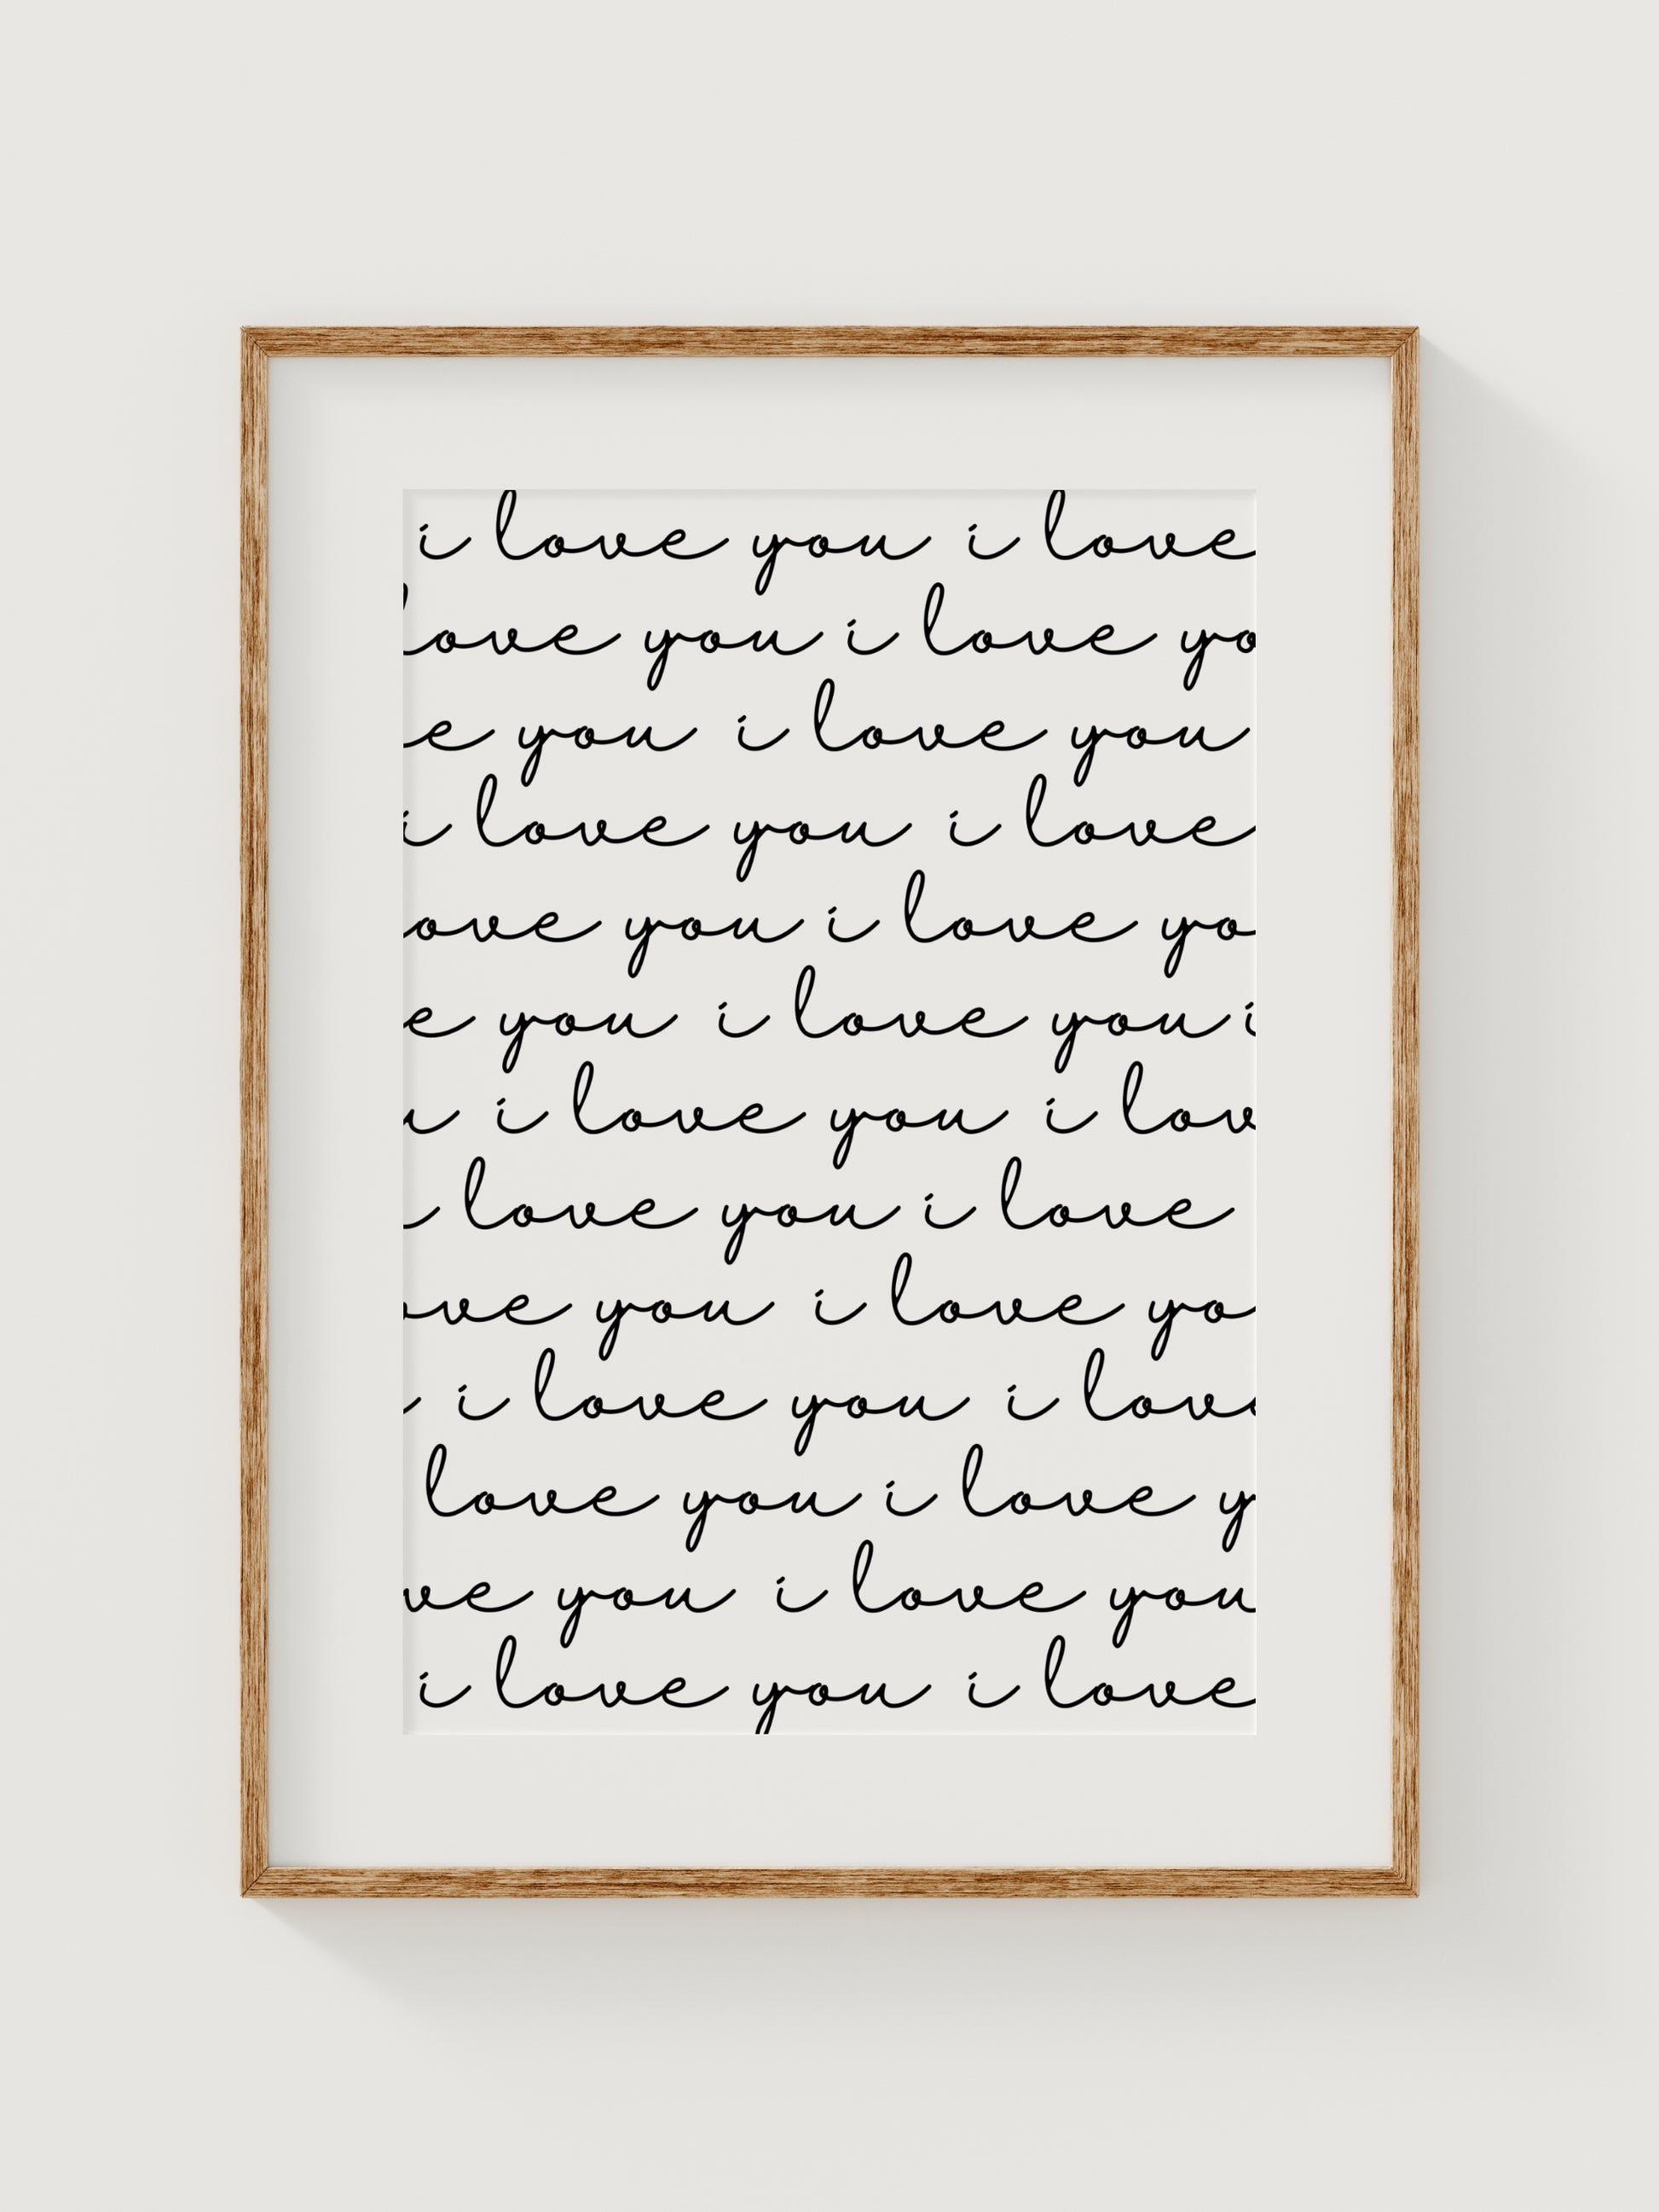 i love you i love
love you i love yo
e you i love you
i love you i love
ove you i love yo
e you i love you i
u i love you i lov
love you i love
ove you i love yo
i love you i love
love you i love y
ve you i love you
i love you i love